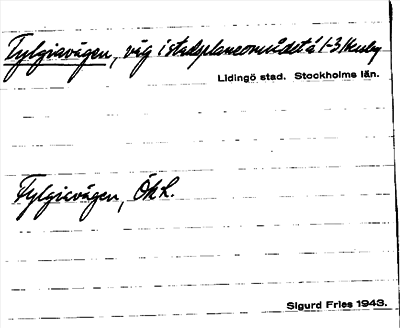 Fylgiavägen, väg i stadsplaneområdet å 1-3 Kusby
Lidingö stad. Stockholms län.
Fylgiavägen, Ök L.
Sigurd Fries 1943.